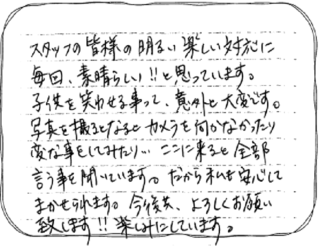 スタッフの皆様の明るい楽しい対応に
毎回、素晴らしい!!と思っています。
子供を笑わせる事って、意外と大変です。
写真を撮るとなるとカメラを向かなかったり
変な事をしてみたり… ここに来ると全部
言う事を聞いています。だから私も安心して
まかせられます。今後共、よろしくお願い
致します!! 楽しみにしています。